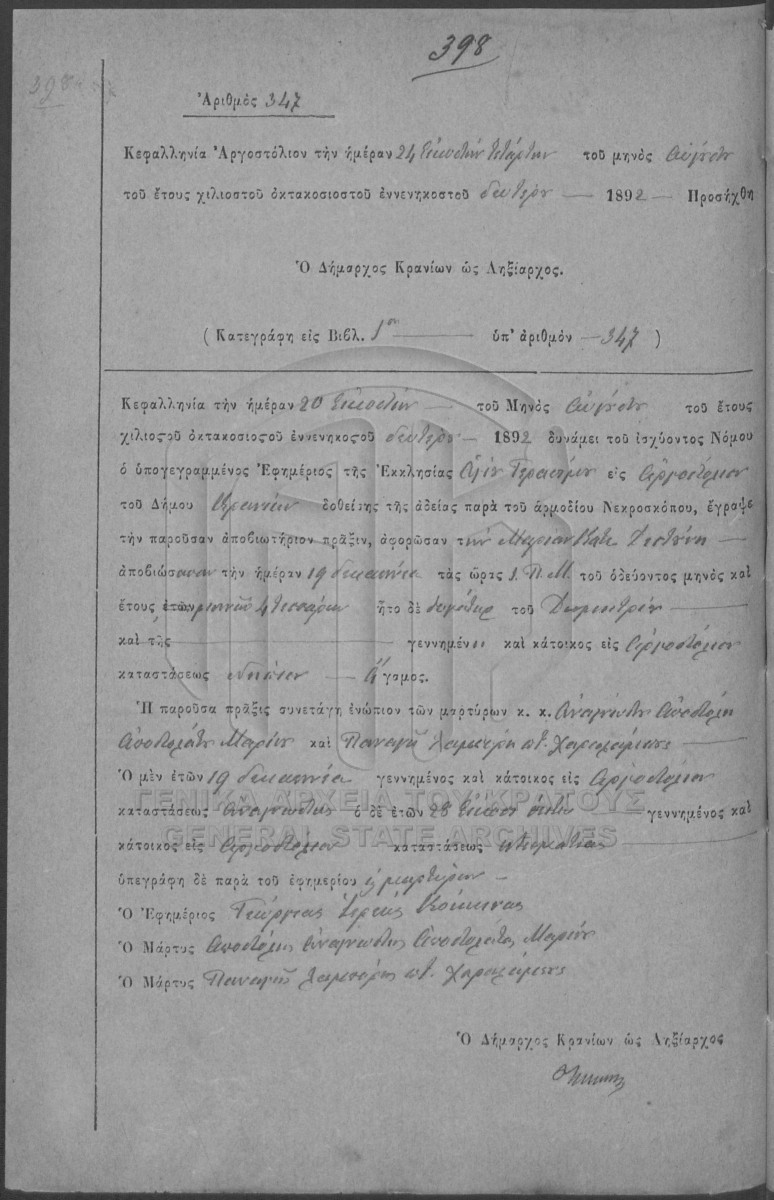 398
398
Ἀριθμὸς 347
Κεφαλληνία Ἀργοστόλιον τὴν ἡμέραν 24 εἰκοστὴν τετάρτην τοῦ μηνὸς Αὐγούστου
τοῦ ἔτους χιλιοστοῦ ὀκτακοσιοστοῦ ἐννενηκοστοῦ δευτέρου — 1892 — Προσήχθη
Ὁ Δήμαρχος Κρανίων ὡς Ληξίαρχος.
( Κατεγράφη εἰς Βιβλ. 1ον — ὑπ' ἀριθμόν — 347 )
Κεφαλληνία τὴν ἡμέραν 20 εἰκοστὴν — τοῦ Μηνὸς Αὐγούστου τοῦ ἔτους
χιλιοςοῦ ὀκτακοσιοςοῦ ἐννενηκοςοῦ δευτέρου — 1892 δυνάμει τοῦ ἰσχύοντος Νόμου
ὁ ὑπογεγραμμένος Ἐφημέριος τῆς Ἐκκλησίας Ἁγίου Γερασίμου εἰς Ἀργοστόλιον
τοῦ Δήμου Κρανίων δοθείσης τῆς ἀδείας παρὰ τοῦ ἁρμοδίου Νεκροσκόπου, ἔγραψε
τὴν παροῦσαν ἀποβιωτήριον πρᾶξιν, ἀφορῶσαν τὴν
ἀποβιώσασαν τὴν ἡμέραν 19 δεκαεννέα τὰς ὥρας Π.Μ. τοῦ ὁδεύοντος μηνὸς καὶ
ἔτους ἐτῶν μηνῶν 4 τεσσάρων ἦτο δὲ θυγάτηρ τοῦ Δημητρίου —
καὶ τῆς — γεννημένη καὶ κάτοικος εἰς Ἀργοστόλιον
καταστάσεως νήπιον — Ἄγαμος.
Ἡ παροῦσα πρᾶξις συνετάγη ἐνώπιον τῶν μαρτύρων κ. κ. Ἀναγνώστη Ἀποστόλη
Ἀποστολάτου Μαρίνου καὶ Παναγῆ π. Χαραλάμπους —
Ὁ μὲν ἐτῶν 19 δεκαεννέα γεννημένος καὶ κάτοικος εἰς Ἀργοστόλιον
καταστάσεως Ἀναγνώστης ὁ δὲ ἐτῶν 28 εἴκοσι ὀκτὼ — γεννημένος καὶ
κάτοικος εἰς Ἀργοστόλιον καταστάσεως κτηματίας —
ὑπεγράφη δὲ παρὰ τοῦ ἐφημερίου μαρτύρων —
Ὁ Ἐφημέριος Γεώργιος Ἱερεὺς Κόκκινος
Ὁ Μάρτυς Ἀποστόλης Ἀναγνώστης Ἀποστολάτος Μαρίνου
Ὁ Μάρτυς Παναγῆς π. Χαραλάμπους
Ὁ Δήμαρχος Κρανίων ὡς Ληξίαρχος
ΓΕΝΙΚΑ ΑΡΧΕΙΑ ΤΟΥ ΚΡΑΤΟΥΣ
GENERAL STATE ARCHIVES